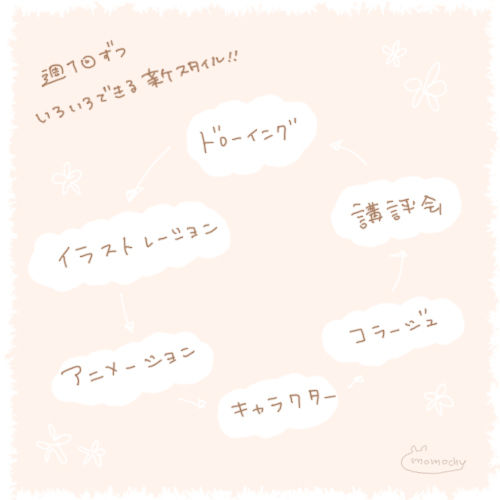 週1回ずつ
いろいろできる新スタイル!!
ドローイング
イラストレーション
アニメーション
キャラクター
コラージュ
講評会
momochy